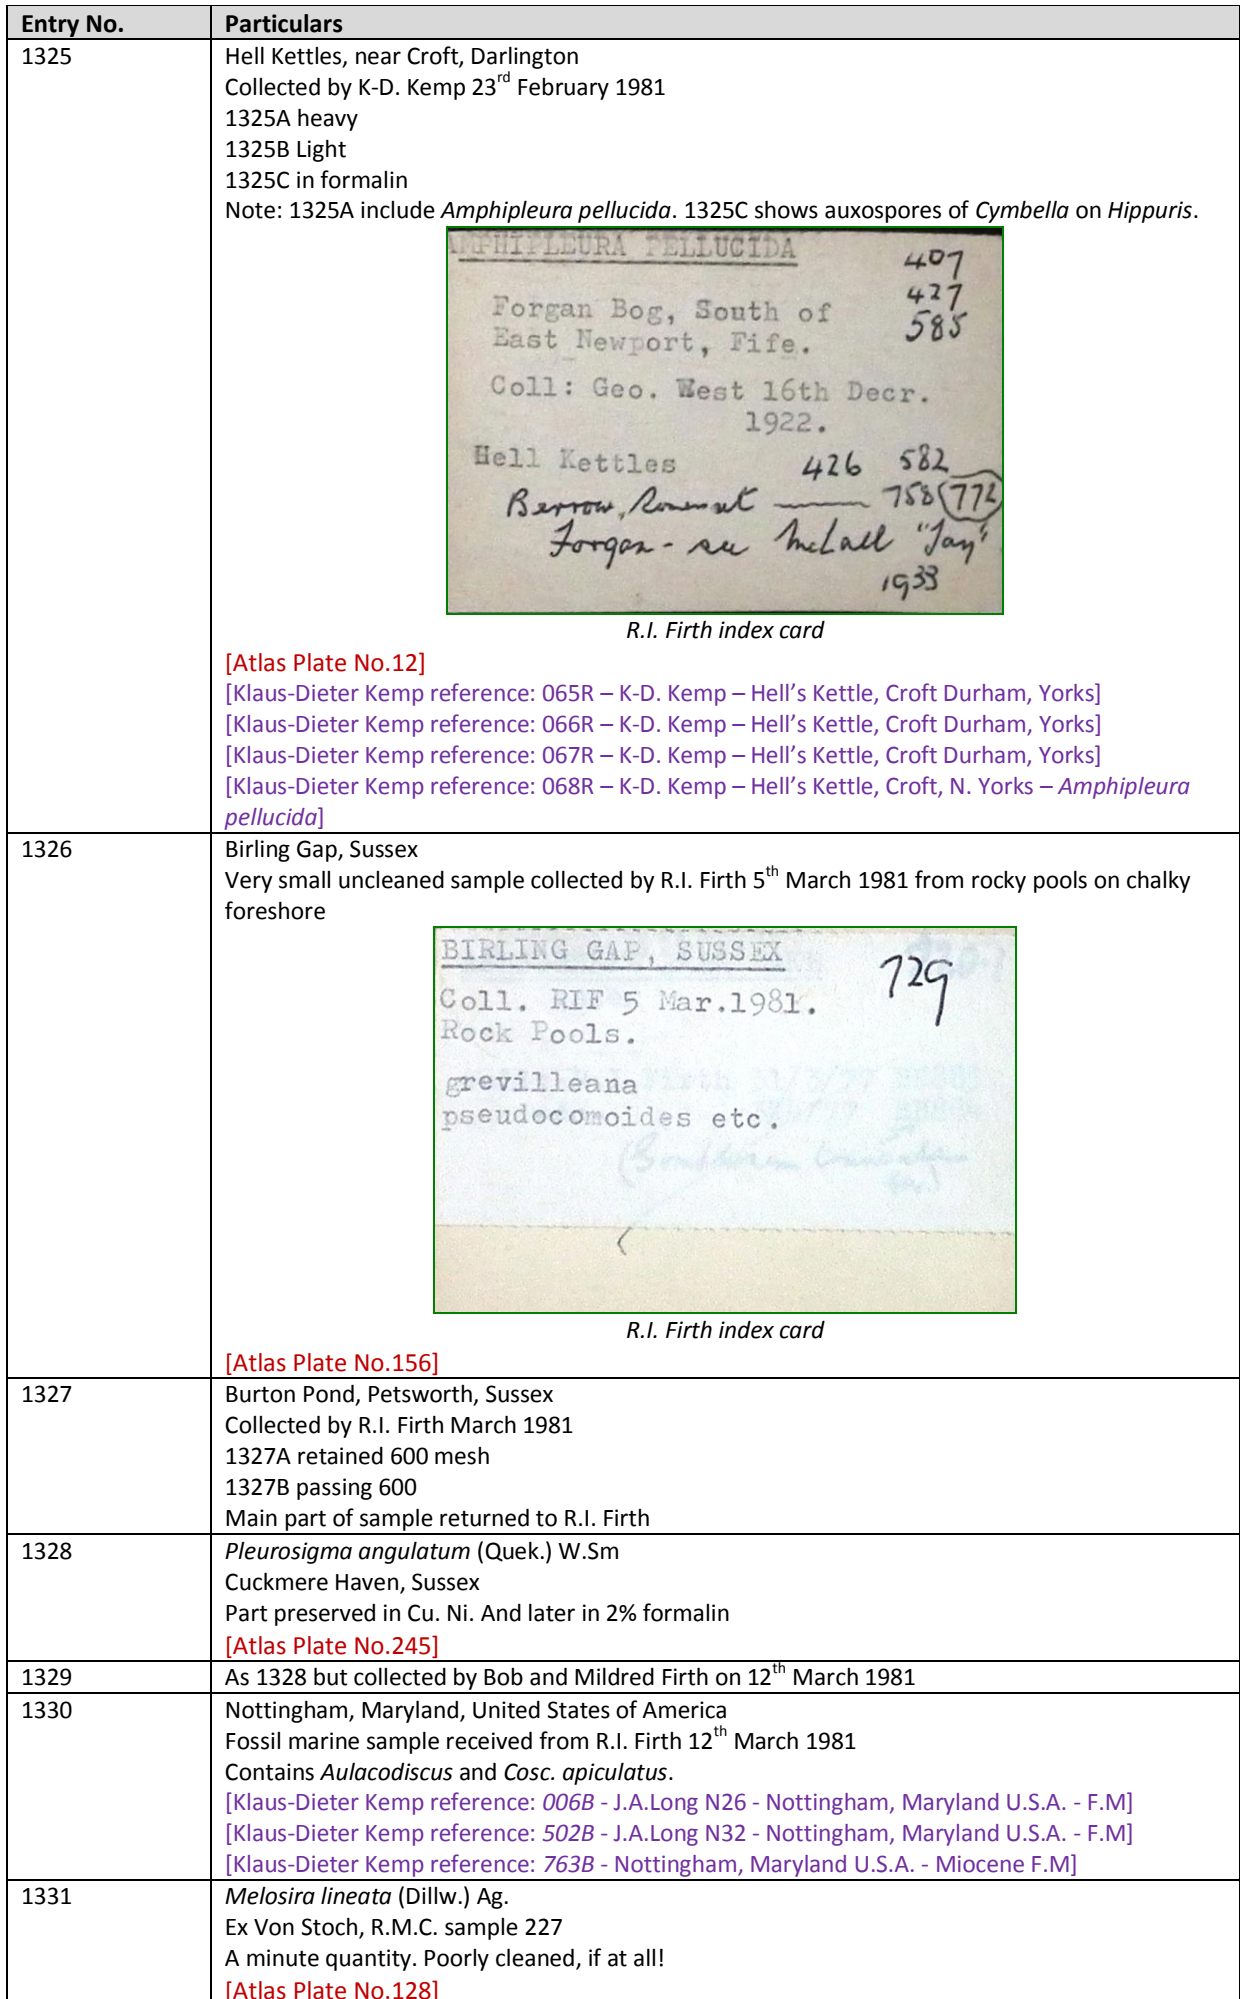 Entry No. Particulars
1325 Hell Kettles, near Croft, Darlington
Collected by K-D. Kemp 23rd February 1981
1325A heavy
1325B Light
1325C in formalin
Note: 1325A include Amphipleura pellucida. 1325C shows auxospores of Cymbella on Hippuris.
AMPHIPLEURA PELLUCIDA 407
427
Forgan Bog, South of 585
East Newport, Fife.
Coll: Geo. West 16th Decr.
1922.
Hell Kettles 426 582
Berrow, Somerset 758 772
Forgan - see "Jay"
1933
R.I. Firth index card
[Atlas Plate No.12]
[Klaus-Dieter Kemp reference: 065R – K-D. Kemp – Hell’s Kettle, Croft Durham, Yorks]
[Klaus-Dieter Kemp reference: 066R – K-D. Kemp – Hell’s Kettle, Croft Durham, Yorks]
[Klaus-Dieter Kemp reference: 067R – K-D. Kemp – Hell’s Kettle, Croft Durham, Yorks]
[Klaus-Dieter Kemp reference: 068R – K-D. Kemp – Hell’s Kettle, Croft, N. Yorks – Amphipleura
pellucida]
1326 Birling Gap, Sussex
Very small uncleaned sample collected by R.I. Firth 5th March 1981 from rocky pools on chalky
foreshore
BIRLING GAP, SUSSEX 729
Coll. RIF 5 Mar.1981.
Rock Pools.
grevilleana
pseudocomoides etc.
R.I. Firth index card
[Atlas Plate No.156]
1327 Burton Pond, Petsworth, Sussex
Collected by R.I. Firth March 1981
1327A retained 600 mesh
1327B passing 600
Main part of sample returned to R.I. Firth
1328 Pleurosigma angulatum (Quek.) W.Sm
Cuckmere Haven, Sussex
Part preserved in Cu. Ni. And later in 2% formalin
[Atlas Plate No.245]
1329 As 1328 but collected by Bob and Mildred Firth on 12th March 1981
1330 Nottingham, Maryland, United States of America
Fossil marine sample received from R.I. Firth 12th March 1981
Contains Aulacodiscus and Cosc. apiculatus.
[Klaus-Dieter Kemp reference: 006B - J.A.Long N26 - Nottingham, Maryland U.S.A. - F.M]
[Klaus-Dieter Kemp reference: 502B - J.A.Long N32 - Nottingham, Maryland U.S.A. - F.M]
[Klaus-Dieter Kemp reference: 763B - Nottingham, Maryland U.S.A. - Miocene F.M]
1331 Melosira lineata (Dillw.) Ag.
Ex Von Stoch, R.M.C. sample 227
A minute quantity. Poorly cleaned, if at all!
[Atlas Plate No.128]